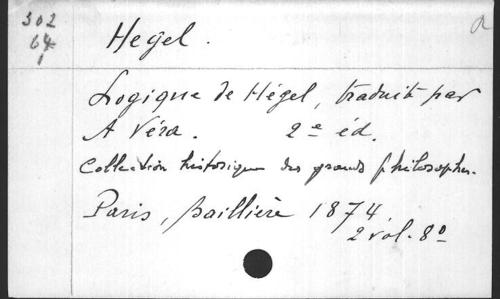 302
64
1
Hegel.
a
Logique de Hégel, traduit par
A Véra. 2e éd.
Collection historique des grands philosophes.
Paris, Baillière 1874
2 vol. 8o